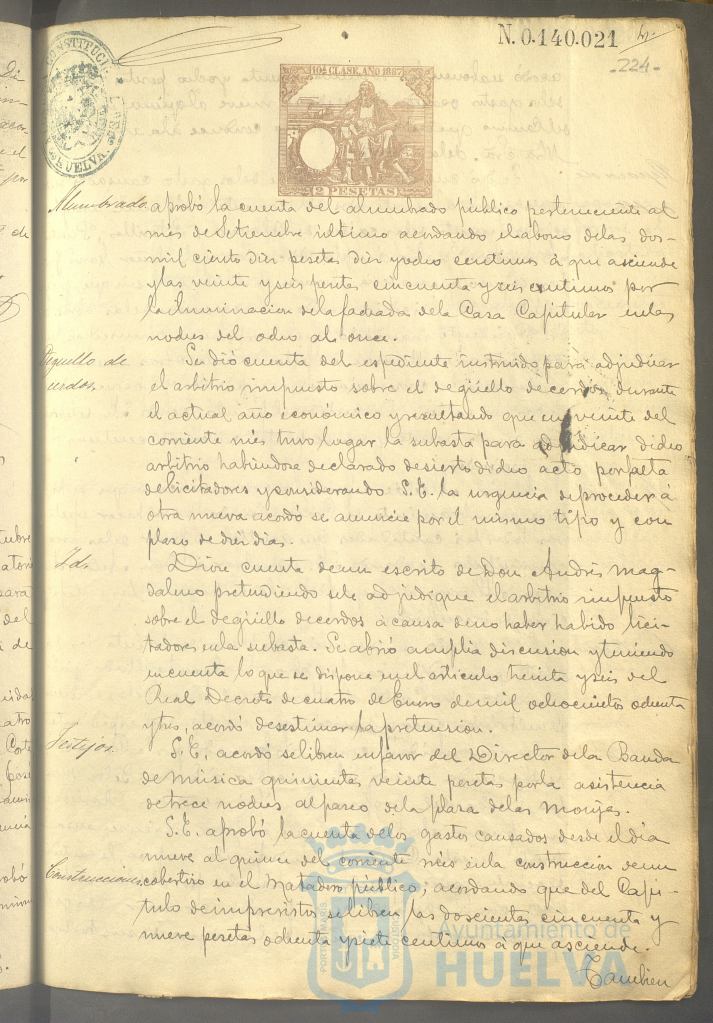 N. 0.140.021
-224-
CONSTITUCI
HUELVA.
10ª CLASE, AÑO 1887
2 PESETAS
Alumbrado. aprobó la cuenta del alumbrado público perteneciente al
més de Setiembre último acordando el abono de las dos-
mil ciento diez pesetas diez y ocho centimos á que asciende
y las veinte y seis pesetas cincuenta y seis centimos por
la iluminacion de la fachada de la Casa Capitular en las
noches del ocho al once.
Deguello de
cerdos.
Se dió cuenta del espediente instruido para adjudicar
el arbitrio impuesto sobre el degüello de cerdos durante
el actual año económico y resultando que en veinte del
corriente més tuvo lugar la subasta para adjudicar dicho
arbitrio habiendose declarado desierto dicho acto por falta
de licitadores y considerando S.E. la urgencia de proceder á
otra nueva acordó se anuncie por el mismo tipo y con
plazo de diez dias.
Id.
Diose cuenta de un escrito de Don Andrés Mag-
daleno pretendiendo se le adjudique el arbitrio impuesto
sobre el degüello de cerdos á causa de no haber habido lici-
tadores en la subasta. Se abrió amplia discusion y teniendo
en cuenta lo que se dispone en el articulo treinta y seis del
Real Decreto de cuatro de Enero de mil ochocientos ochenta
y tres, acordó desestimar la pretension.
Festejos.
S.E. acordó se libren en favor del Director de la Banda
de Música quinientas veinte pesetas por la asistencia
de trece noches al paseo de la plaza de las Monjas.
S.E. aprobó la cuenta de los gastos causados desde el dia
nueve al quince del corriente més en la construccion de un
Construcciones. cobertizo en el Matadero público; acordando que del Capi-
tulo de imprevistos se libren las doscientas cincuenta y
nueve pesetas ochenta y siete centimos á que asciende.
Tambien
Ayuntamiento de
HUELVA